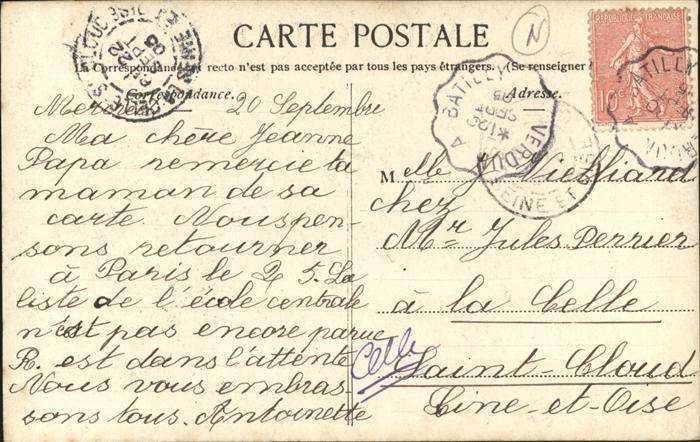 CARTE POSTALE
La Correspondance au recto n'est pas acceptée par tous les pays étrangers. (Se renseigner
Correspondance.
Adresse.
N
RÉPUBLIQUE FRANÇAISE
10c
BATILLY
VERDUN A BATILLY
SEPT
05
SEINE ET
20 Septembre
Ma chère Jeanne
Papa remercie ta
maman de sa
carte Nous pen-
sons retourner
à Paris le 25. La
liste de l'école centrale
n'est pas encore parue
R. est dans l'attente
Nous vous embras
sons tous. Antoinette
Melle J. Vielliard
chez
Mr Jules Perrier
à la Celle
Celle
Saint-Cloud
Sine-et-Oise